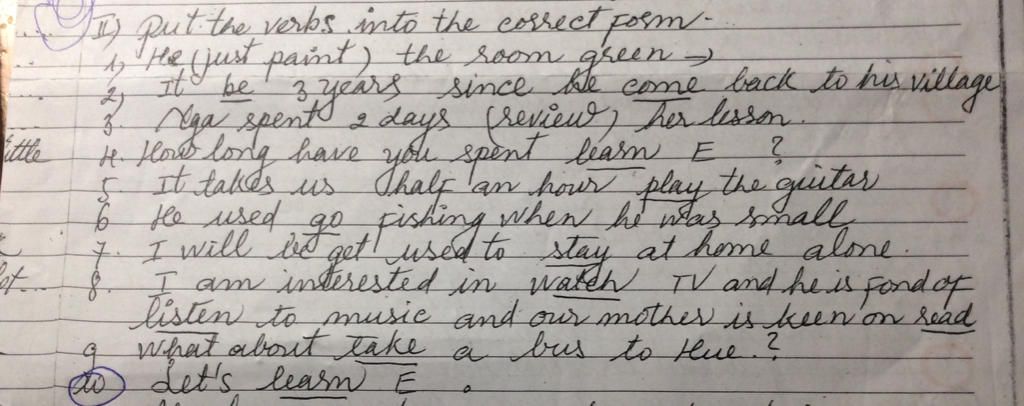 II) put the verbs into the correct form.
1, He (just paint) the room green →
2, It be 3 years since he come back to his village
3. Nga spent 2 days (review) her lesson.
ittle 4. How long have you spent learn E ?
5 It takes us half an hour play the guitar
6 He used go fishing when he was small
7. I will be get used to stay at home alone.
ot.... 8. I am interested in watch TV and he is fond of
listen to music and our mother is keen on read
9 What about take a bus to Hue.?
10 Let's learn E .